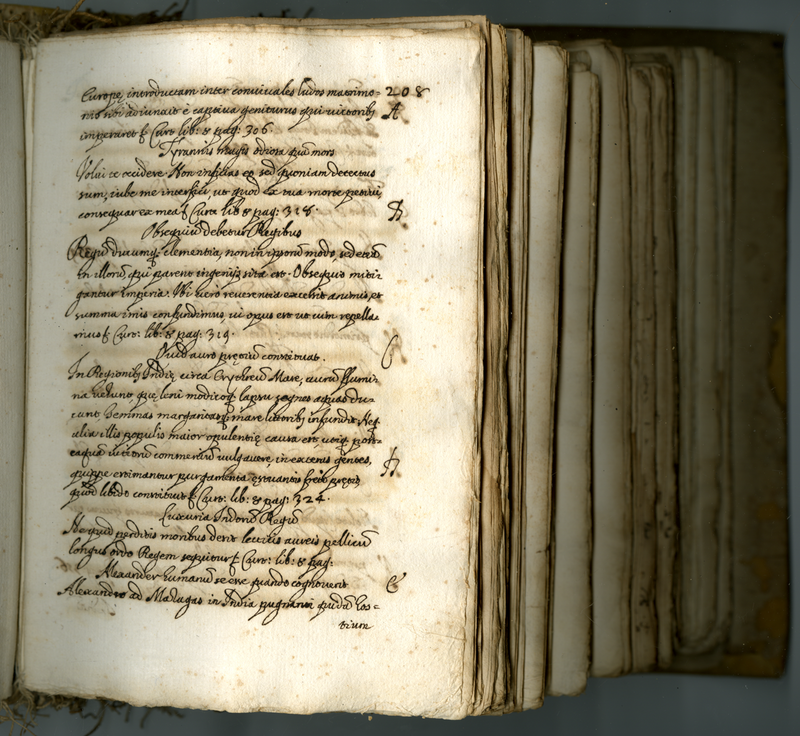 Europę introductam inter conviuales ludos matrimo= 208
nio sibi adiunxit è captiua geniturus qui victoribꝫ A
imperaret ꝭ Curt. lib: 8 pag: 306.
Tyrannis magis odiosa quā mors
Volui te occidere Non inficias eo sed quoniam detectus
sum, iube me interfici, ut quod ex tua morte petiui,
consequar ex mea ꝭ Curt: lib 8 pag: 318. B
Obsequiū debetur Regibus
Regū ducumqꝫ clementia, non in ipsorū modo, sed etiā
in illorū, qui parent ingenijs sita est. Obsequio miti-
gantur imperia. Vbi vero reuerentia excessit animis, et
summa imis confundimus, ui opus est ut uim repella
mus ꝭ Curt: lib: 8 pag: 319.
Quid auro pretiū constituat. C
In Regionibꝫ Indię circa Erythreū Mare, aurū flumi-
na uehunt quę leni modicoqꝫ lapsu segnes aquas du-
cunt Gemmas margaritasqꝫ mare littoribꝫ infundit Neqꝫ
alia illis populis maior opulentię causa est, utiqꝫ post-
eaquā uitiorū commerciū uulgauere, in exteras gentes,
quippe ęstimantur purgamenta ęstuantis freti pretio, D
quod libido constituit ꝭ Curt: lib: 8 pag: 324.
Luxuria Indorū Regū
Ne quid perditis moribus desit lecticis aureis pellicū
longus ordo Regem sequitur ꝭ Curt: lib: 8 pag:
Alexander humanū se esse quando cognouerit E
Alexandro ad Mazagas in India pugnanti quidā hos=
tium